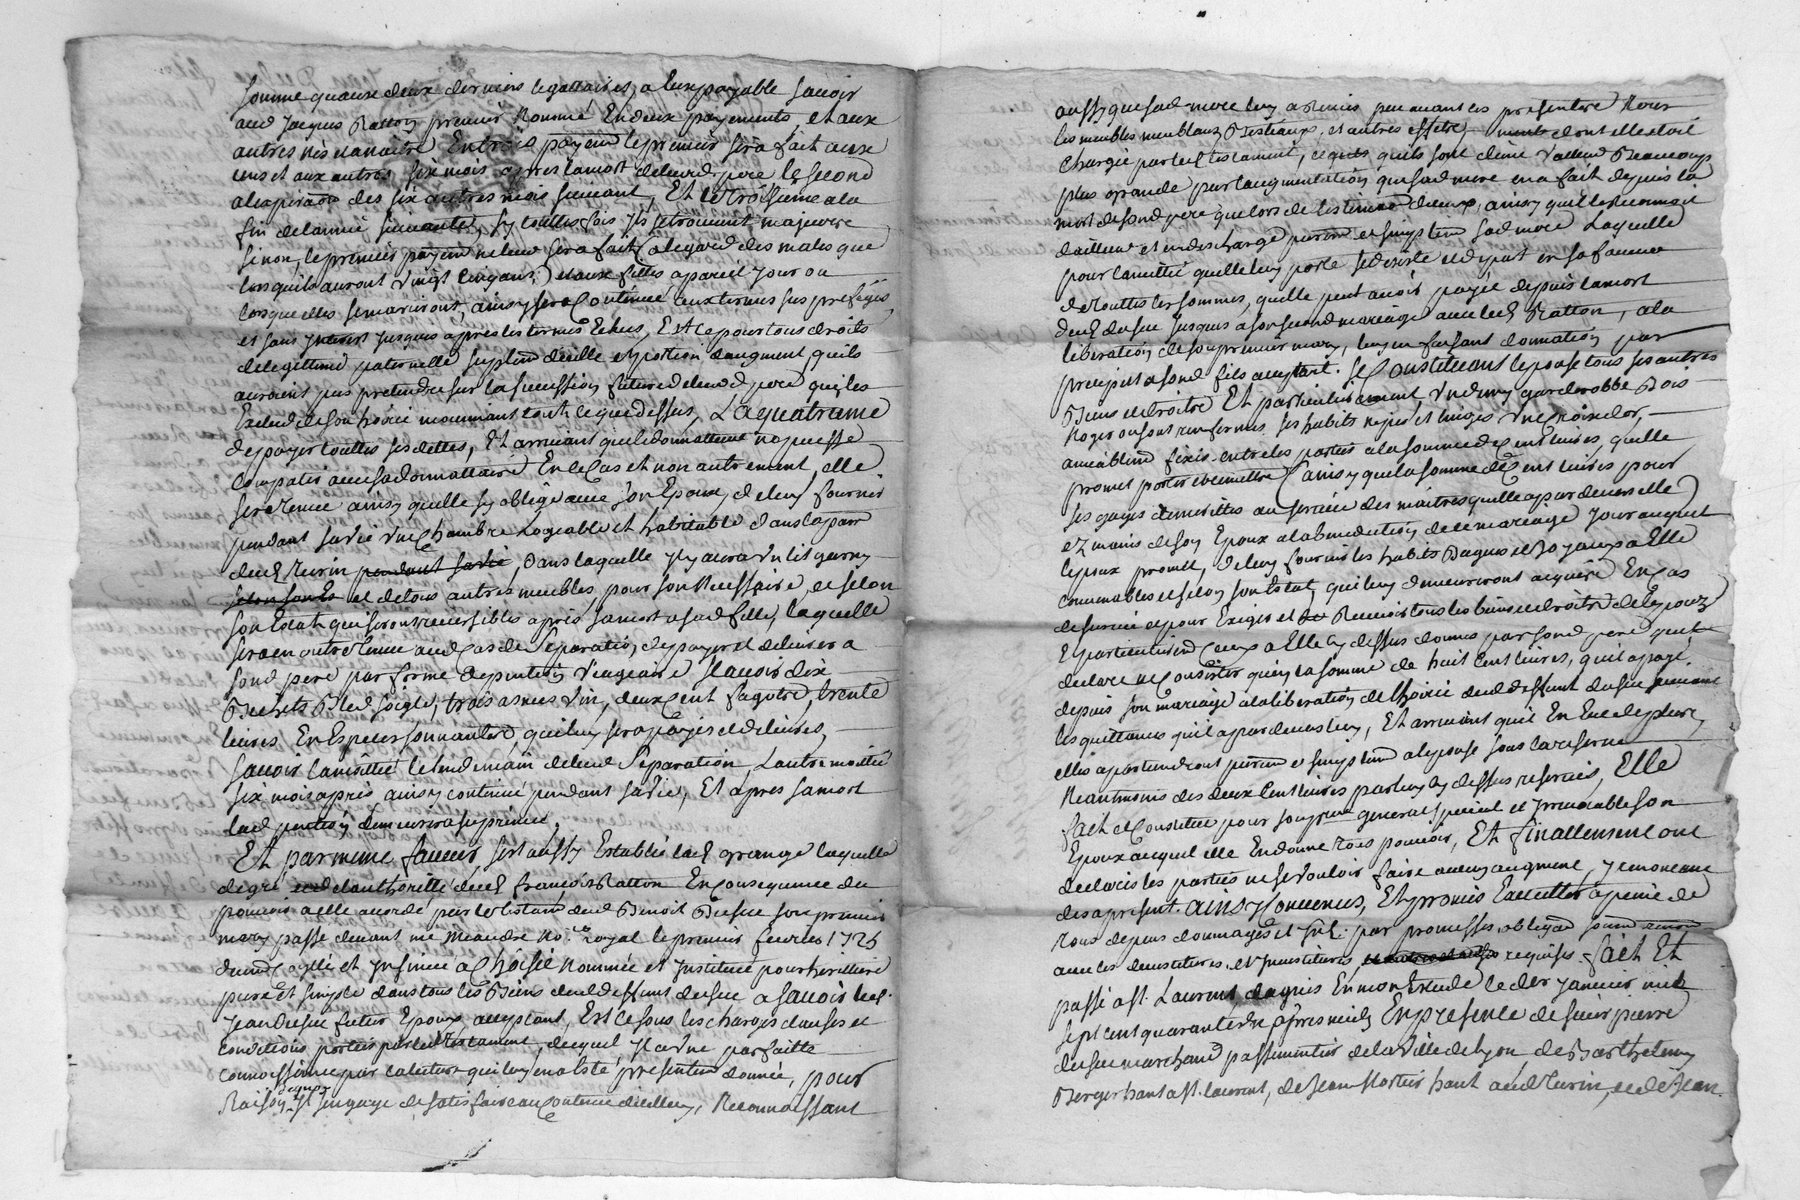 somme quauxd deux derniers legattaires, a eux payable sauoir
aud Jacques Ratton premier nommé En deux payements, et aux
autres nés et a naitre En trois payemt le premier sera fait aux
uns et aux autres six mois apres la mort de leurd pere le second
a lexpiraõn des six autres mois suiuant, Et le troisieme a la
fin de lannée suiuante, sy touttes fois ils se trouuent majeurs
sinon, le premier payem ne leur sera fait, a legard des males que
lors quils auront vingt cinq ans, et aux filles a pareil jour ou
lorsquelles se marieront, ainsy sera continué aux termes sus prefigés
et sans interest jusques apres les termes Echus, Est ce pour tous droits
de legittime paternelle supplem dicelle et portion daugment quils
auroient pus pretendre sur la succession future de leurd pere qui les
Exclud de son hoirie moiennant tout ce que dessus, La quatrieme
de payer touttes ses dettes, Et arriuant que le donnatteur ne puisse
compatir auec sa donnattaire En ce cas et non autrement, elle
sera tenue ainsy quelle sy oblige auec son Epoux, de luy fournir
pendant sa vie une chambre logeable et habitable dans la par
dud Turin pendant sa vie, dans laquelle il y aura un lit garny
selon son Es et de tous autres meubles, pour son necessaire, et selon
son Etat, qui seront reuersibles apres sa mort a sad fille, laquelle
sera en outre tenue aud cas de separation, de payer et deliurer a
sond pere par forme de pention viageaire sauoir dix
Bichets Bled seigle, trois asnées vin, deux cent fagots, trente
liures En Especes sonnantes, qui luy sera payés et deliurés,
sauoir la moittié le lendemain de leurd separation, Lautre moittié
six mois apres ainsy continué pendant sa vie, Et apres sa mort
lad pention demeurera suprimée
Et par meme faueur, sest aussy Establie lad grange laquelle
de gré et de lauthorité dud françois Ratton En consequence du
pouuoir a elle accordé par le testam dud Benoit Dufue son premier
mary passé deuant me Meandre no.re royal le premier feurier 1725
duemt collé et insinué a choisie nommée et institué pour herittiere
pure et simple dans tous les Biens dud deffunt Dufue a sauoir led.
Jean Dufue futur Epoux, acceptant, Est ce sous les charges clauses et
conditions portées par led testament, duquel il a eu une parfaitte
connoissance par la lecture qui luy en a Esté presentem donnée, pour
Raison dequoy il sengage de satisfaire au contenu dicelluy, Reconnoissant
aussy que sad mere luy a remis par auant ces presentes Tous
les meubles meublants Bestiaux, et autres effets dont elle etoit
chargée par led testament, lequels quils sont dune valleur Beaucoup
plus grande par laugmentation que sad mere en a fait depuis la
mort de sond pere que lors de lestimaõn dieux, ainsy quil le reconnoit
dailleur et en descharge purem et simplem sad mere Laquelle
pour lamittié quelle luy porte se desiste et depart en sa faueur
de touttes les sommes, quelle peut auoir payée depuis la mort
dud Dufue jusques a son second mariage auec led Ratton, a la
liberation de son premier mary, luy en faisant donnation par
preciput a sond fils acceptant. se Constituant lepouse tous ses autres
Biens et droits Et particulierement, un demy garderobbe Bois
Noyer ou sont renfermés ses habits nipes et linges une croix dor,
amiablem fixés entre les parties a la somme de cent liures, quelle
promet porter et remettre ainsy que la somme de cent liures pour
ses gages et merittes au seruice des maitres quelle a par deuers elle
ez mains de son Epoux a la benediction de ce mariage jour auquel
lepoux promet, de luy fournir les habits Bagues et Joyaux a Elle
conuenables et selon son Etat, qui luy demeureront acquis En cas
de suruie et pour Exiger et Receuoir tous les biens et droits de lepouze
Et particulierem ceux a Elle cy dessus donnés par sond pere quil
declare ne consister qu'en la somme de huit cent liures, quil a payé
depuis son mariage a la liberation de lhoirie dud deffunt Dufue suiuant
les quittances quil a par deuers luy, Et arriuant quil En Exede plus,
elles apartiendront purem et simplem a lepouse sous la reserue
Neantmoins des deux cent liures par luy cy dessus reserués, Elle
fait et Constitue pour son pcur general special et irreuocable son
Epoux auquel elle En donne tous pouuoir, Et finallement ont
declarés les parties ne se vouloir faire aucun augment, y renoncant
des a present. ainsy Conuenus, Et promis Executter a peine de
tous depens dommages et int. par promesses, obligaõn
auec les demistitures, et inuestitures, requises. fait Et
passé a St. Laurent dagnis En mon Etude le der janvier mil
sept cent quarante un apres midy En presence de sieur pierre
Dufue marchand passementier de la ville de Lyon de Barthelemy
Berger hant a St. Laurent, de Jean Mortier hant aud Turin, et de Jean